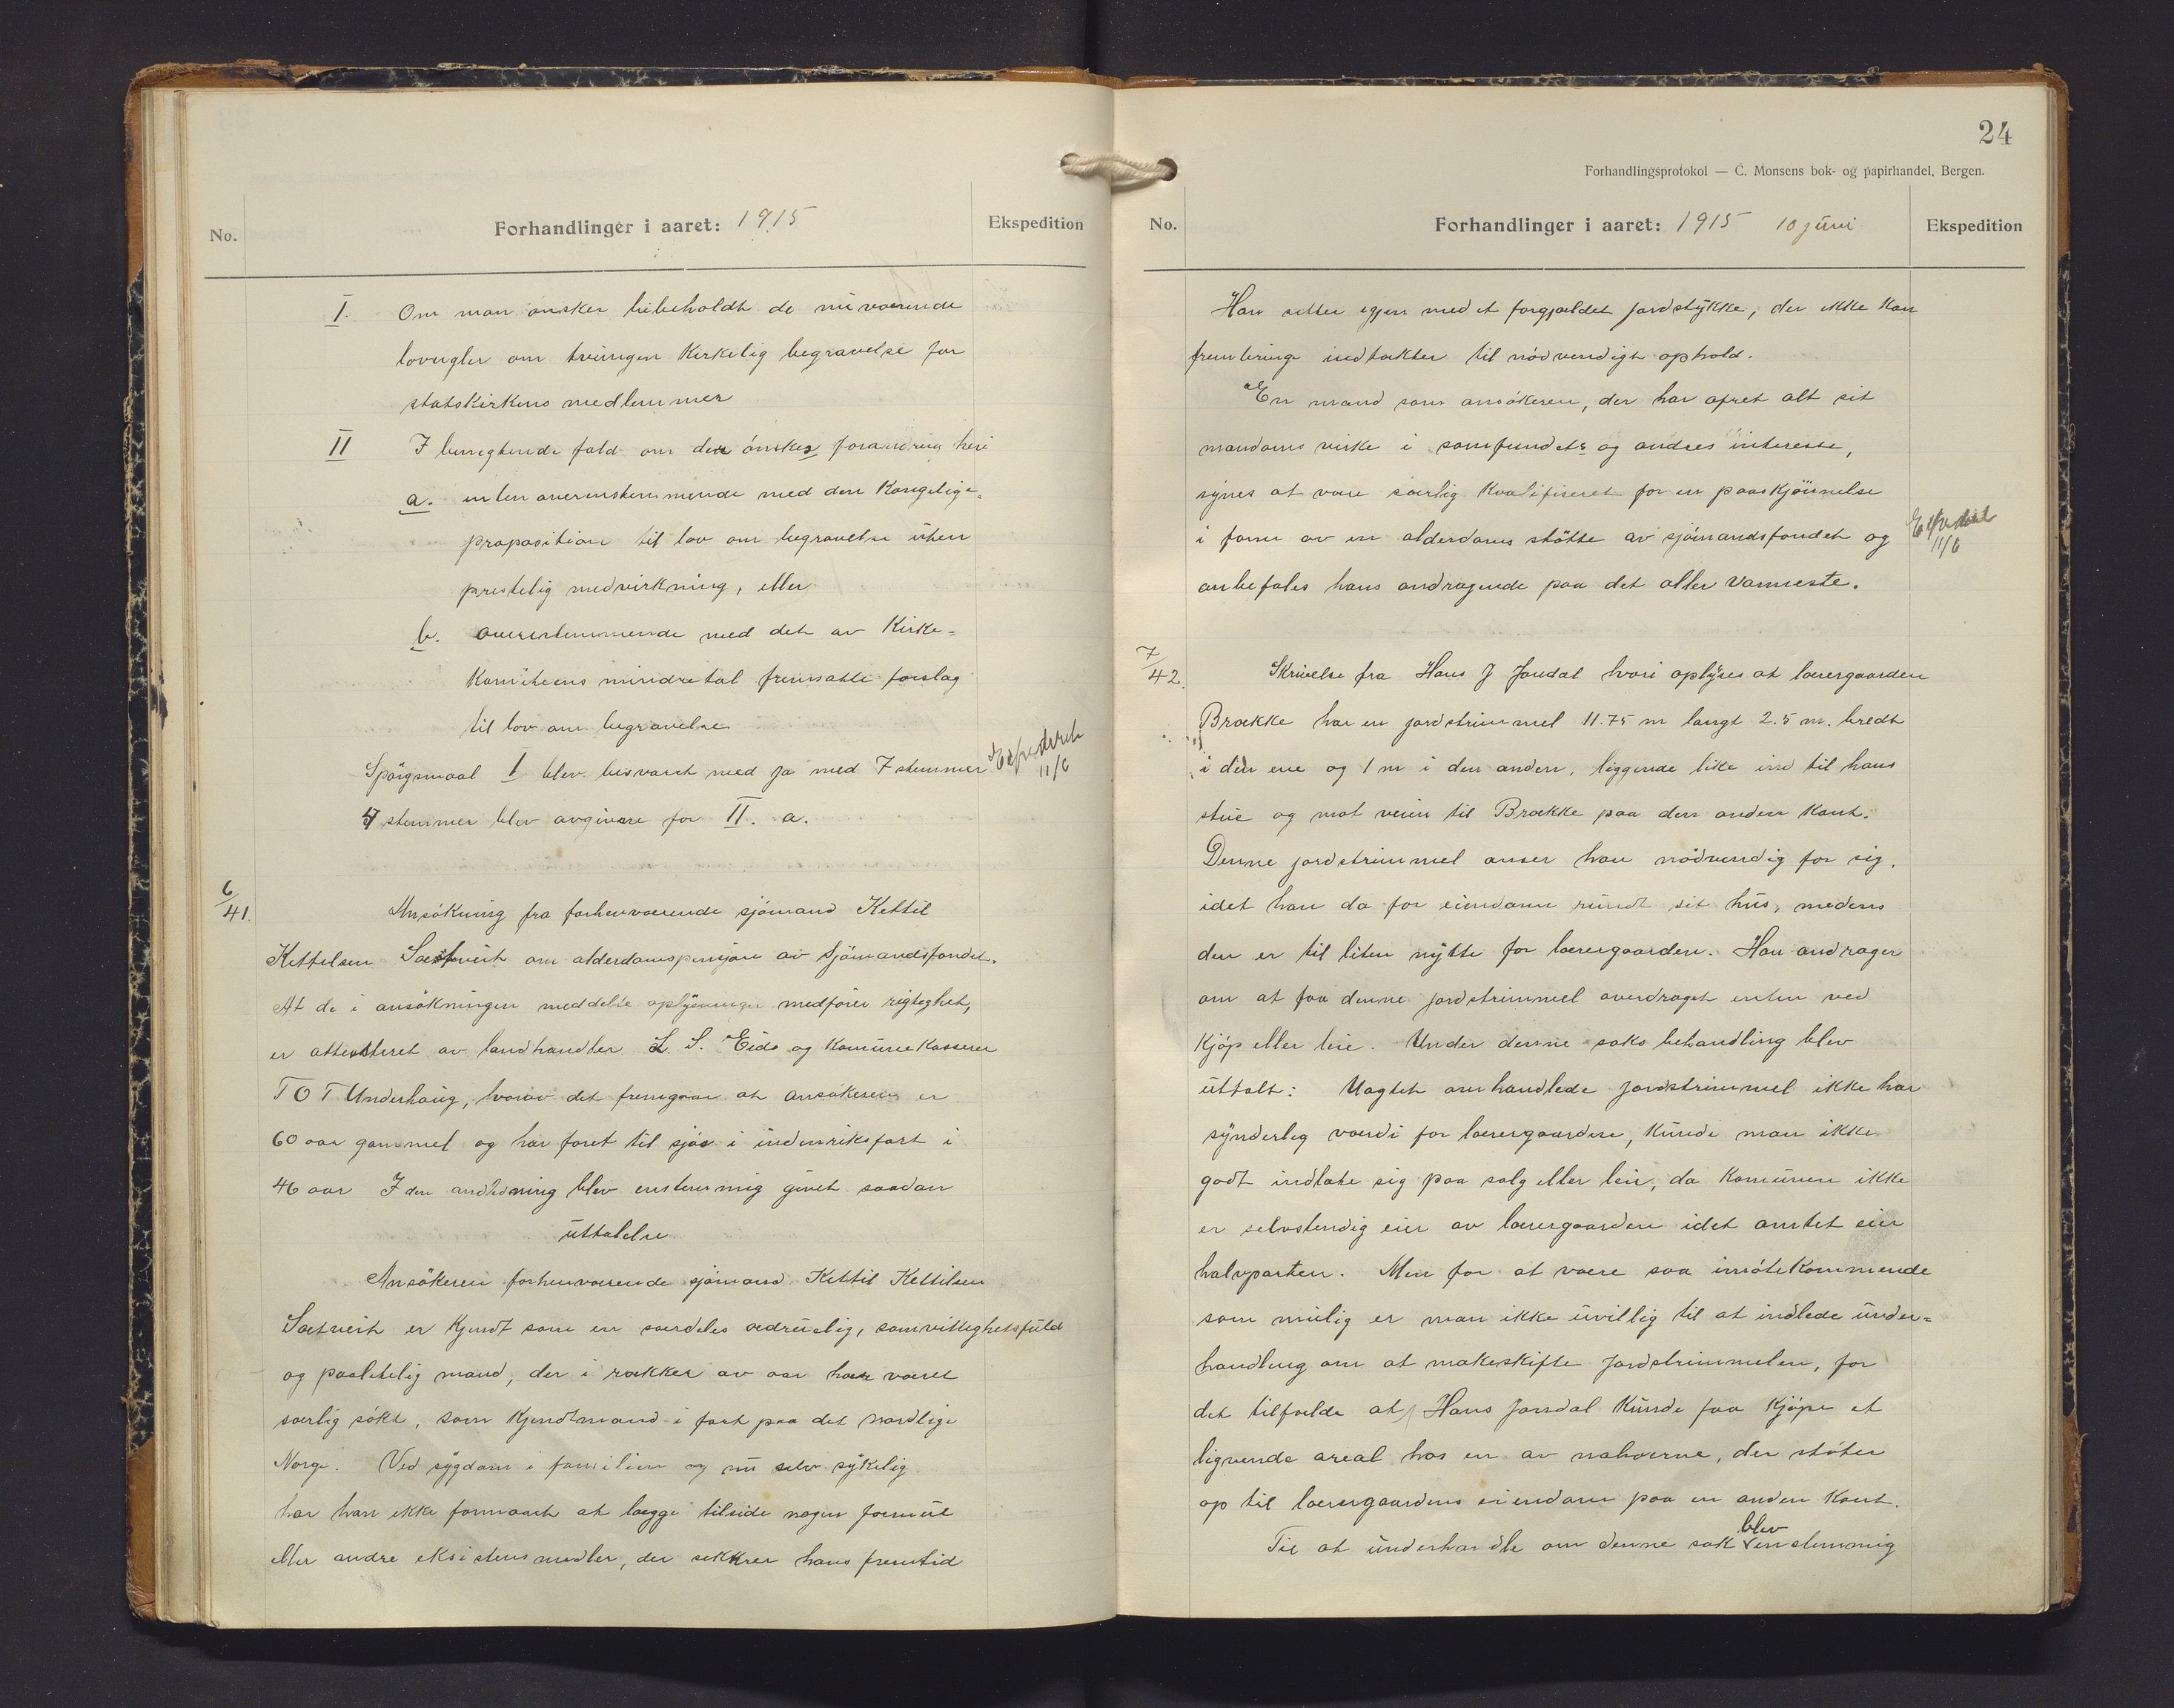 No.
Forhandlinger i aaret: 1915
Ekspedition
I. Om man ønsker bibeholdt de nuværende
lovregler om tvungen Kirkelig begravelse for
statskirkens medlemmer
II I benegtende fald om der ønskes forandring heri
a. enten overensstemmende med den Kongelige
proposition til lov om begravelse uten
prestelig medvirkning, eller
b. overensstemmende med det av Kirke-
Komiteens mindretal fremsatte forslag
til lov om begravelse
Spørgsmaal I blev besvaret med ja med 7 stemmer
4 stemmer blev avgivne for II. a.
Expederet
11/6
6/41.
Ansökning fra forhenværende sjömand Kettil
Kettilsen Sætveit om alderdomspensjon av Sjömandsfondet.
At de i ansökningen meddelte oplysninger medfører rigtighet,
er attesteret av landhandler L. S. Eide og Komunekasserer
T O T Underhaug, hvorav det fremgaar at ansøkeren er
60 aar gammel og har faret til sjøs i indenriksfart i
46 aar I den anledning blev enstemmig givet saadan
uttalelse
Ansökeren forhenværende sjömand Kettil Kettilsen
Sætveit er kjendt som en særdeles ædruelig, samvittighetsfuld
og paalitelig mand, der i rækker av aar har været
særlig søkt, som Kjendtmand i fart paa det nordlige
Norge. Ved sygdom i familien og nu selv sykelig
har han ikke formaaet at lægge tilside nogen formue
eller andre eksistensmidler, der sikkrer hans fremtid
24
Forhandlingsprotokol — C. Monsens bok- og papirhandel, Bergen.
No.
Forhandlinger i aaret: 1915 10 juni
Ekspedition
Han sitter igjen med et forgjældet jordstykke, der ikke kan
frembringe indtækter til nödvendigt ophold.
En mand som ansökeren, der har ofret alt sit
mandoms virke i samfundets og andres interesse,
synes at være særlig Kvalifiseret for en paaskjönnelse
i form av en alderdoms støtte av sjömandsfondet og
anbefales hans andragende paa det aller varmeste.
Expederet
11/6
7/42.
Skrivelse fra Hans J Jondal hvori oplyses at lærergaarden
Brække har en jordstrimmel 11.75 m langt 2.5 m. bredt
i den ene og 1 m i den anden, liggende like ind til hans
stue og mot veien til Brække paa den anden Kant.
Denne jordstrimmel anser han nödvendig for sig,
idet han da for eiendom rundt sit hus, medens
den er til liten nytte for lærergaarden. Han andrager
om at faa denne jordstrimmel overdraget enten ved
Kjøp eller leie. Under denne saks behandling blev
uttalt: Uagtet omhandlede jordstrimmel ikke har
synderlig værdi for lærergaarden, Kunde man ikke
godt indlate sig paa salg eller leie, da Komunen ikke
er selvstendig eier av lærergaarden idet amtet eier
halvparten. Men for at være saa imøtekommende
som mulig er man ikke uvillig til at indlede under-
handling om at makeskifte Jordstrimmelen, for
det tilfælde at Hans Jondal Kunde faa Kjöpe et
lignende areal hos en av naboerne, der støter
op til lærergaardens eiendom paa en anden Kant.
Til at underhandle om denne sak blev enstemmig